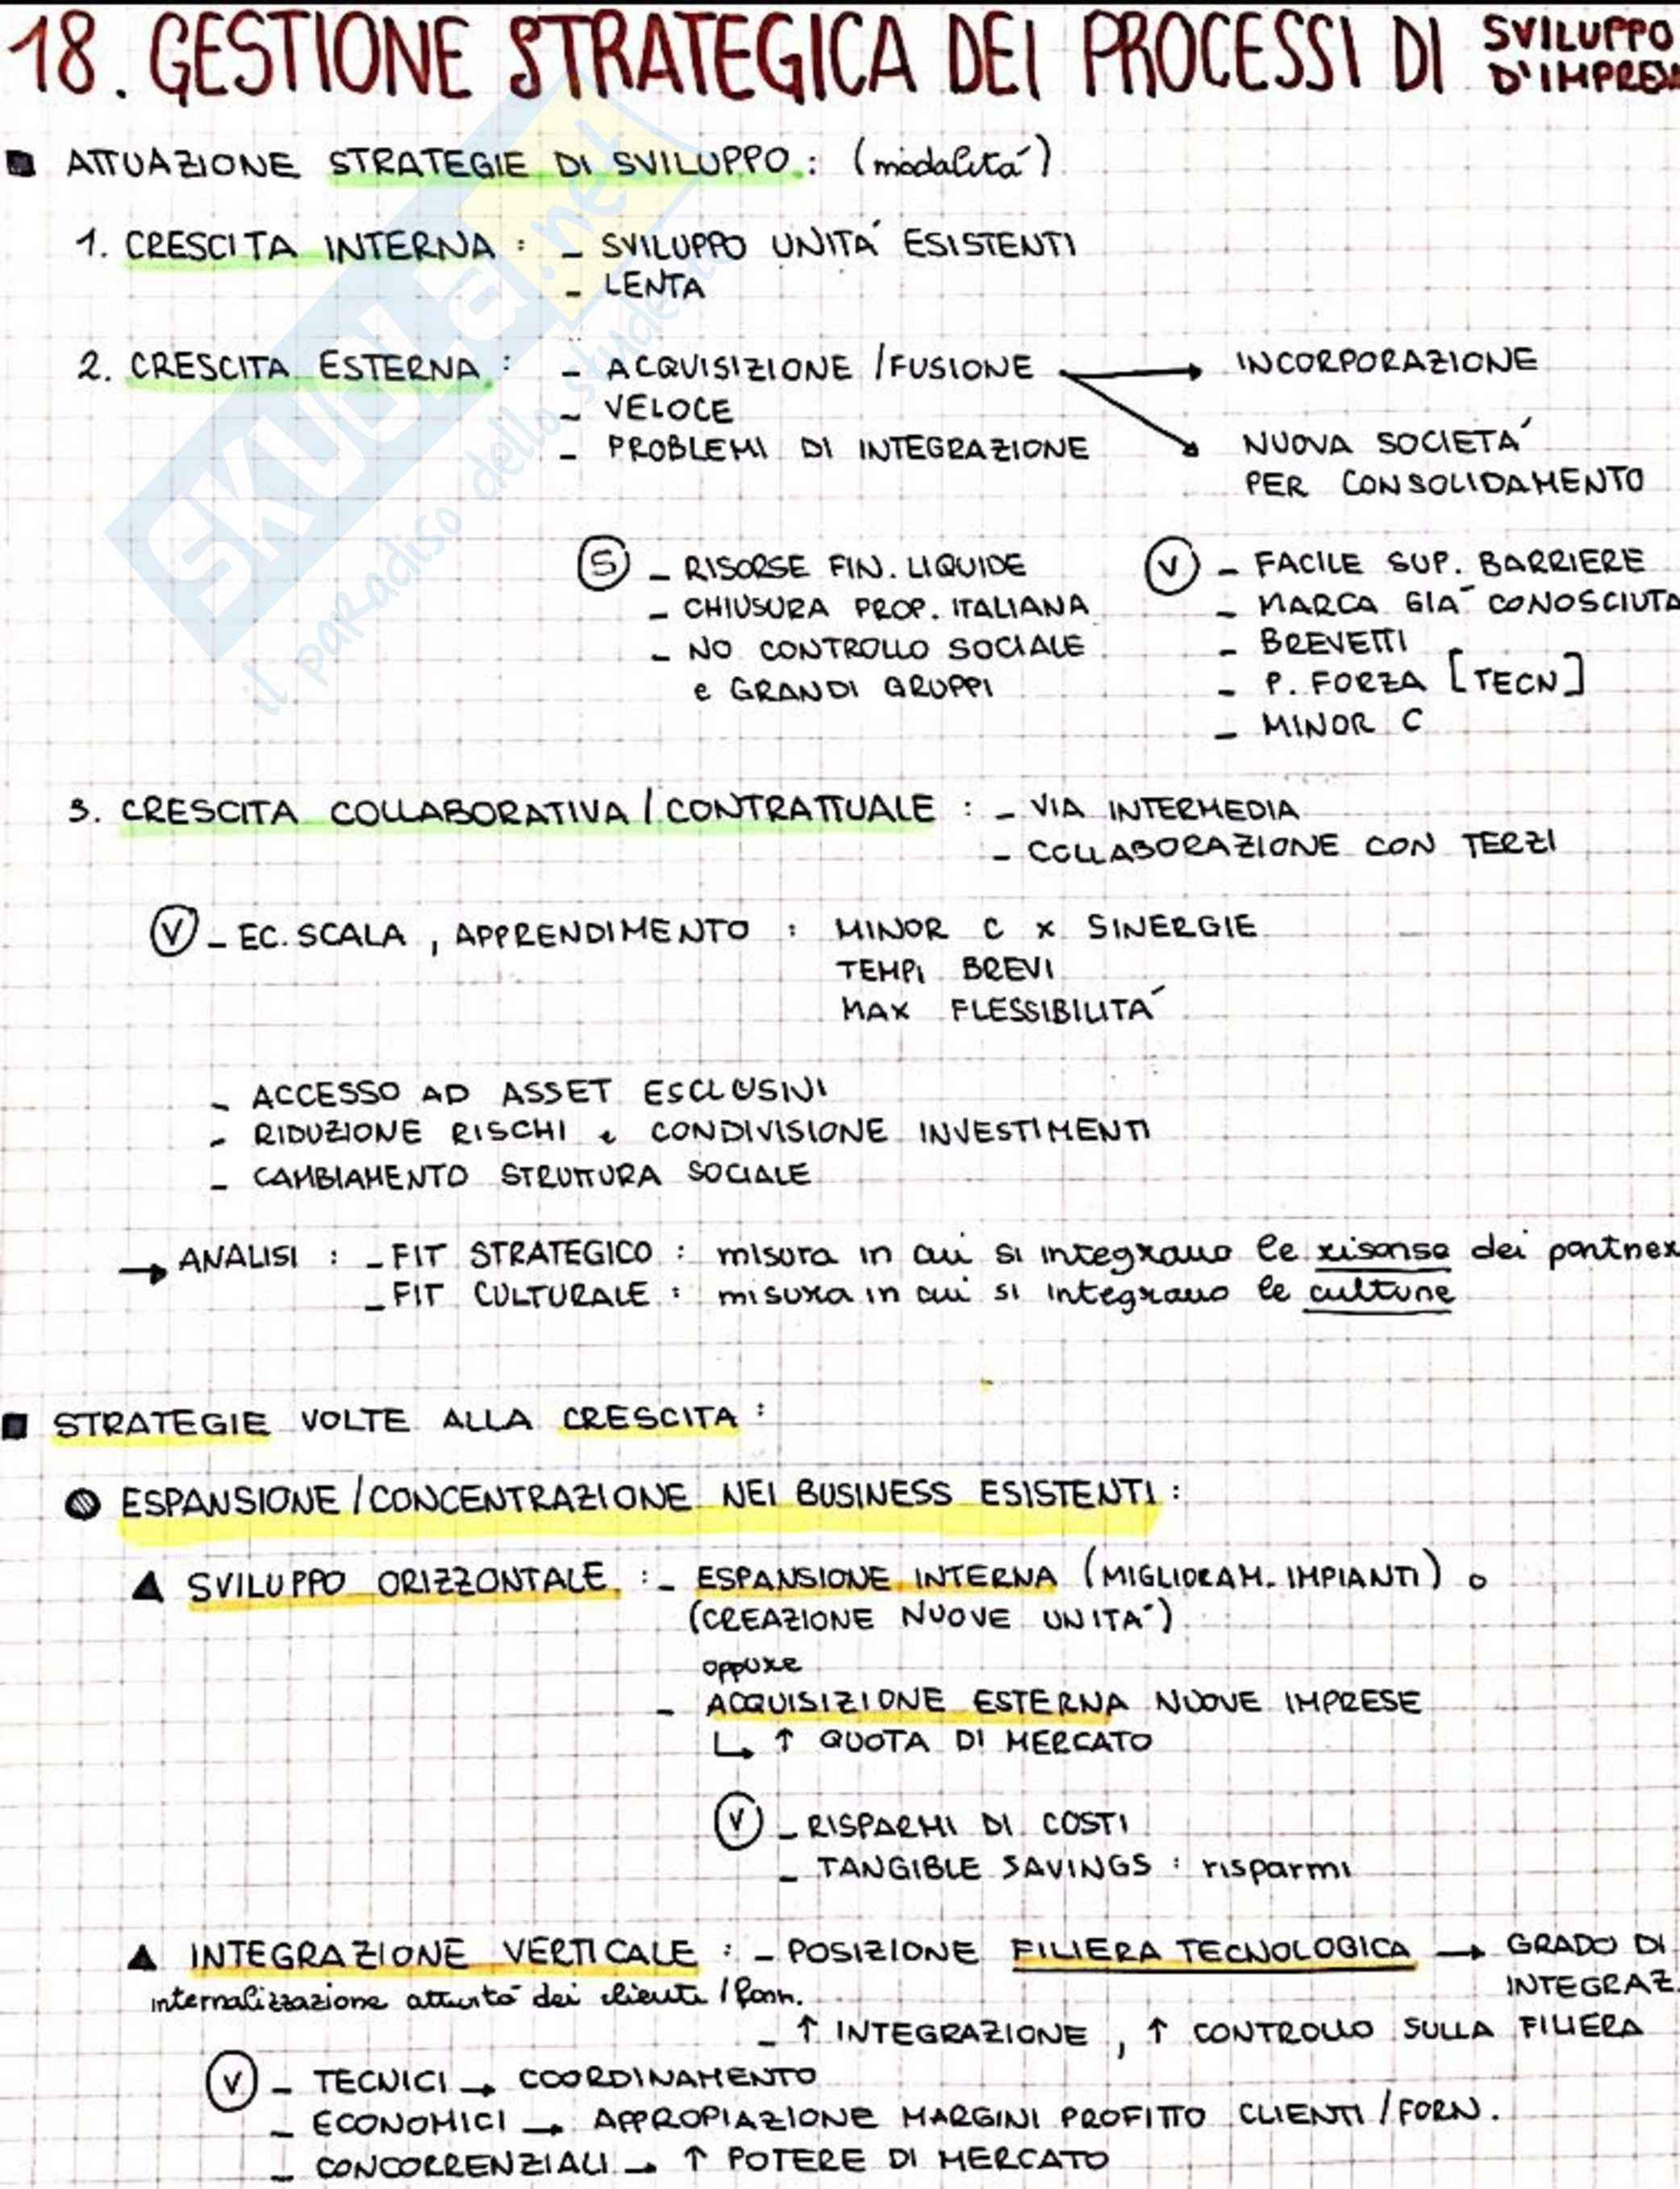 18. GESTIONE STRATEGICA DEI PROCESSI DI SVILUPPO
D'IMPRES
ATTUAZIONE STRATEGIE DI SVILUPPO : (modalità)
1. CRESCITA INTERNA : - SVILUPPO UNITÀ ESISTENTI
- LENTA
2. CRESCITA ESTERNA : - ACQUISIZIONE / FUSIONE → INCORPORAZIONE
- VELOCE
- PROBLEMI DI INTEGRAZIONE → NUOVA SOCIETÀ
PER CONSOLIDAMENTO
S - RISORSE FIN. LIQUIDE
- CHIUSURA PROP. ITALIANA
- NO CONTROLLO SOCIALE
e GRANDI GRUPPI
V - FACILE SUP. BARRIERE
- MARCA GIÀ CONOSCIUTA
- BREVETTI
- P. FORZA [TECN]
- MINOR C
3. CRESCITA COLLABORATIVA / CONTRATTUALE : - VIA INTERMEDIA
- COLLABORAZIONE CON TERZI
V - EC. SCALA , APPRENDIMENTO : MINOR C x SINERGIE
TEMPI BREVI
MAX FLESSIBILITÀ
- ACCESSO AD ASSET ESCLUSIVI
- RIDUZIONE RISCHI e CONDIVISIONE INVESTIMENTI
- CAMBIAMENTO STRUTTURA SOCIALE
→ ANALISI : - FIT STRATEGICO : misura in cui si integrano le risorse dei partner
- FIT CULTURALE : misura in cui si integrano le culture
STRATEGIE VOLTE ALLA CRESCITA :
ESPANSIONE / CONCENTRAZIONE NEI BUSINESS ESISTENTI :
SVILUPPO ORIZZONTALE : - ESPANSIONE INTERNA (MIGLIORAM. IMPIANTI) o
(CREAZIONE NUOVE UNITÀ)
oppure
- ACQUISIZIONE ESTERNA NUOVE IMPRESE
↳ ↑ QUOTA DI MERCATO
V - RISPARMI DI COSTI
- TANGIBLE SAVINGS : risparmi
INTEGRAZIONE VERTICALE : - POSIZIONE FILIERA TECNOLOGICA → GRADO DI
INTEGRAZ.
internalizzazione attività dei clienti / forn.
- ↑ INTEGRAZIONE , ↑ CONTROLLO SULLA FILIERA
V - TECNICI → COORDINAMENTO
- ECONOMICI → APPROPIAZIONE MARGINI PROFITTO CLIENTI / FORN.
- CONCORRENZIALI → ↑ POTERE DI MERCATO
SKUOLA.net
il paradiso dello studente